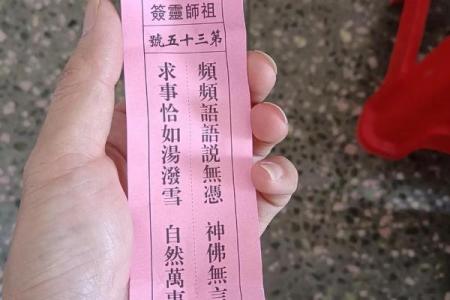 祖師靈簽
第三十五號
頻頻語語說無憑 神佛無言
求事恰如湯潑雪 自然萬事